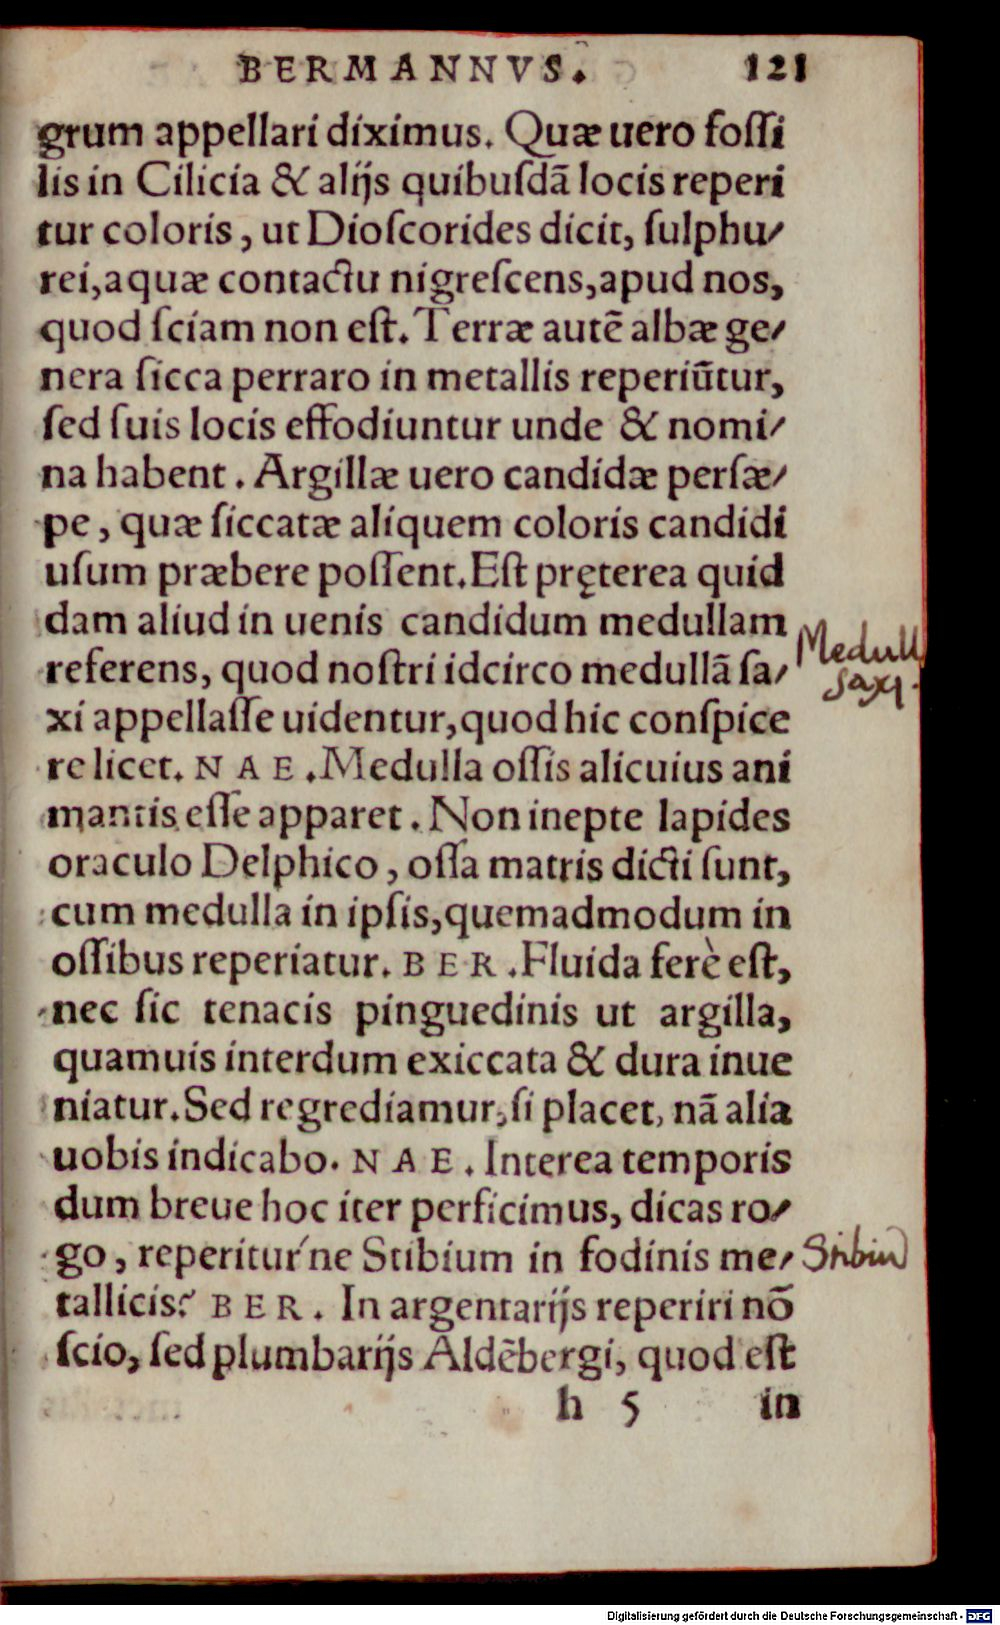 BERMANNVS. 121
grum appellari diximus. Quæ uero fossi
lis in Cilicia & alijs quibusdā locis reperi
tur coloris, ut Dioscorides dicit, sulphu/
rei, aquæ contactu nigrescens, apud nos,
quod sciam non est. Terræ autē albæ ge/
nera sicca perraro in metallis reperiūtur,
sed suis locis effodiuntur unde & nomi/
na habent. Argillæ uero candidæ persæ/
pe, quæ siccatæ aliquem coloris candidi
usum præbere possent. Est pręterea quid
dam aliud in uenis candidum medullam
referens, quod nostri idcirco medullā sa/
xi appellasse uidentur, quod hic conspice
re licet. NAE. Medulla ossis alicuius ani
mantis esse apparet. Non inepte lapides
oraculo Delphico, ossa matris dicti sunt,
cum medulla in ipsis, quemadmodum in
ossibus reperiatur. BER. Fluida ferè est,
nec sic tenacis pinguedinis ut argilla,
quamuis interdum exiccata & dura inue
niatur. Sed regrediamur, si placet, nā alia
uobis indicabo. NAE. Interea temporis
dum breue hoc iter perficimus, dicas ro/
go, reperitur'ne Stibium in fodinis me/
tallicis? BER. In argentarijs reperiri nō
scio, sed plumbarijs Aldēbergi, quod est
h 5 in
Medull
saxi.
Stibiū
Digitalisierung gefördert durch die Deutsche Forschungsgemeinschaft - DFG